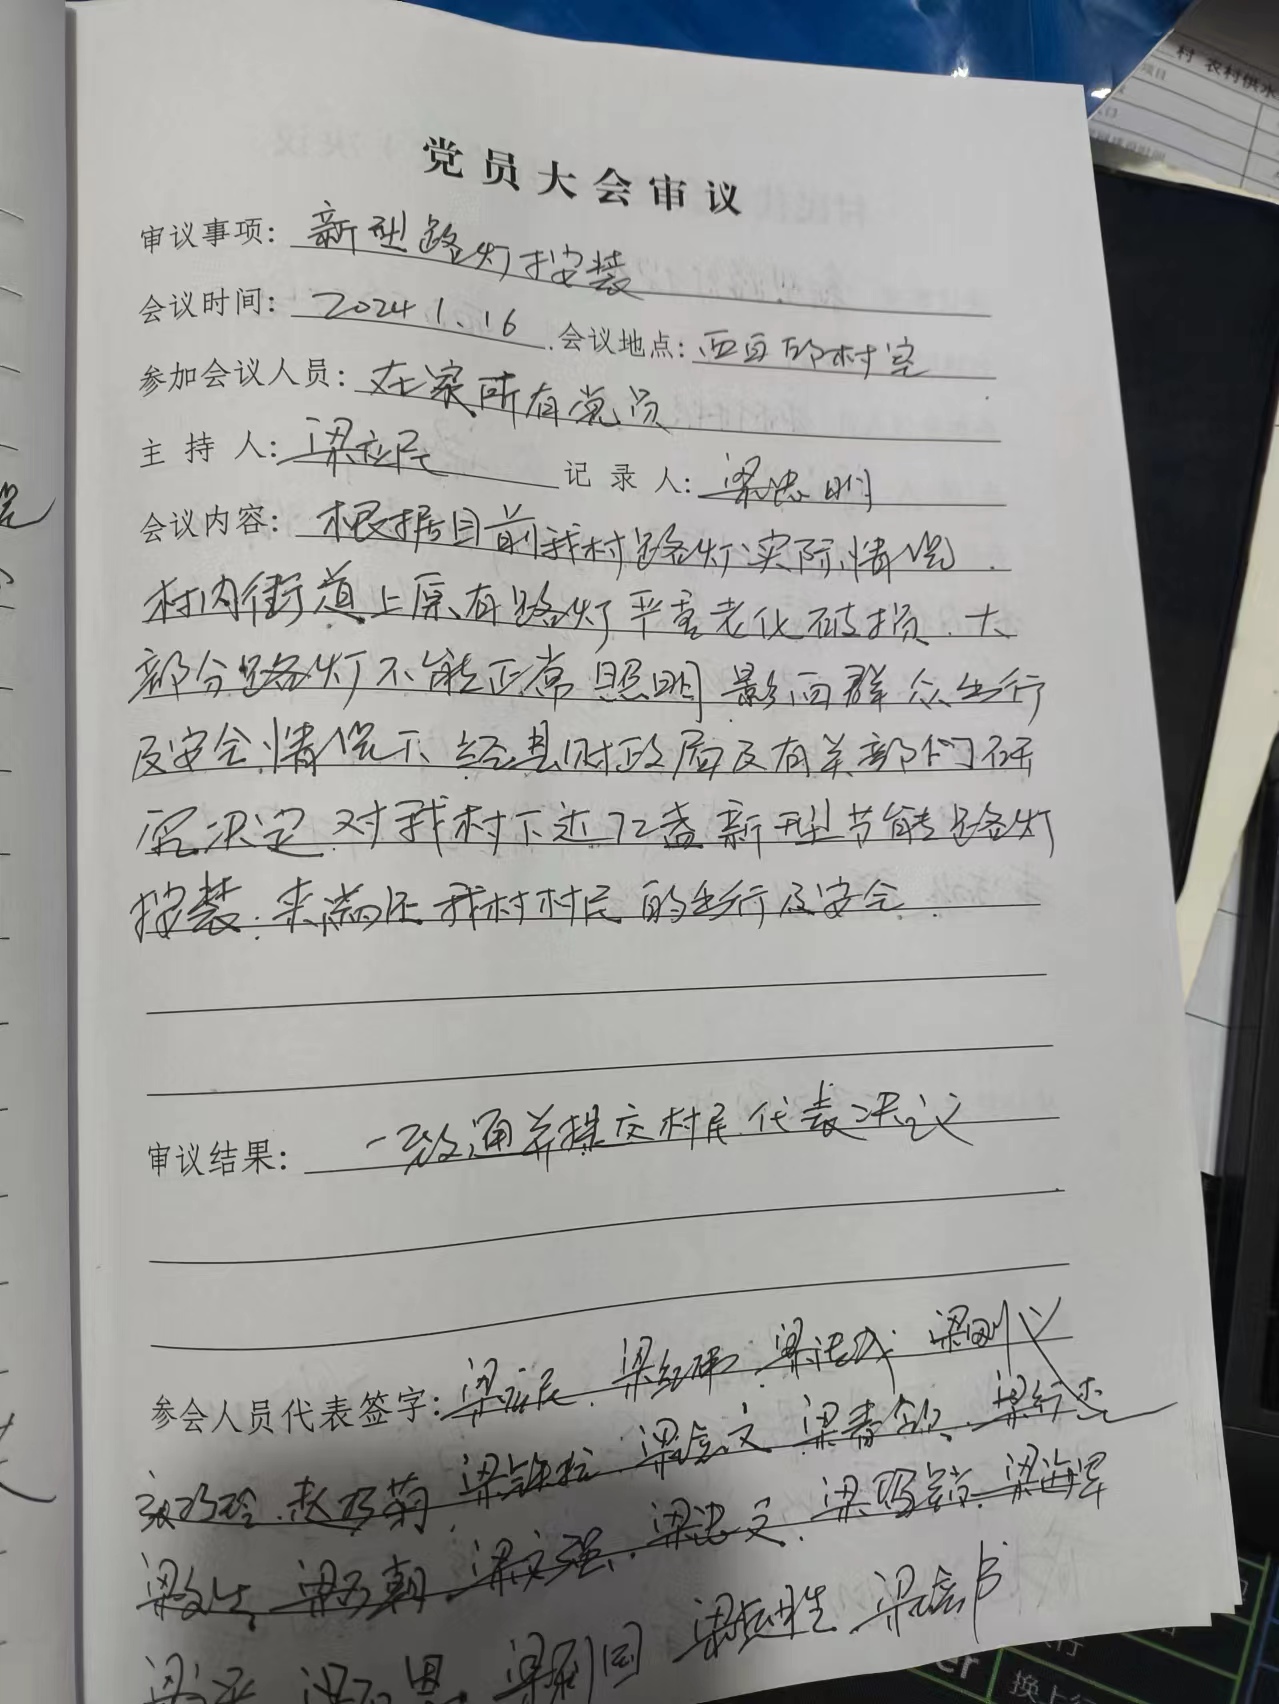 村 农村供水
项目
党员大会审议
审议事项: 新型路灯按装
会议时间: 2024 1.16 会议地点: 西百邱村室
参加会议人员: 在家所有党员
主持人: 梁立民 记录人: 梁忠明
会议内容: 根据目前我村路灯实际情况.
村内街道上原有路灯严重老化破损.大
部分路灯不能正常照明 影向群众出行
及安全.情况下 经县财政局及有关部门研
究决定 对我村下达72盏新型节能路灯
按装.来满足我村村民的出行及安全.
审议结果: 一致通并提交村民代表决议
参会人员代表签字: 梁立民. 梁红伟. 梁
赵乃菊. 梁 梁 文 梁春 梁行杰
梁文生 梁 朝 梁文强. 梁忠文. 梁 梁海军
梁 梁利国 梁 梁
换上行